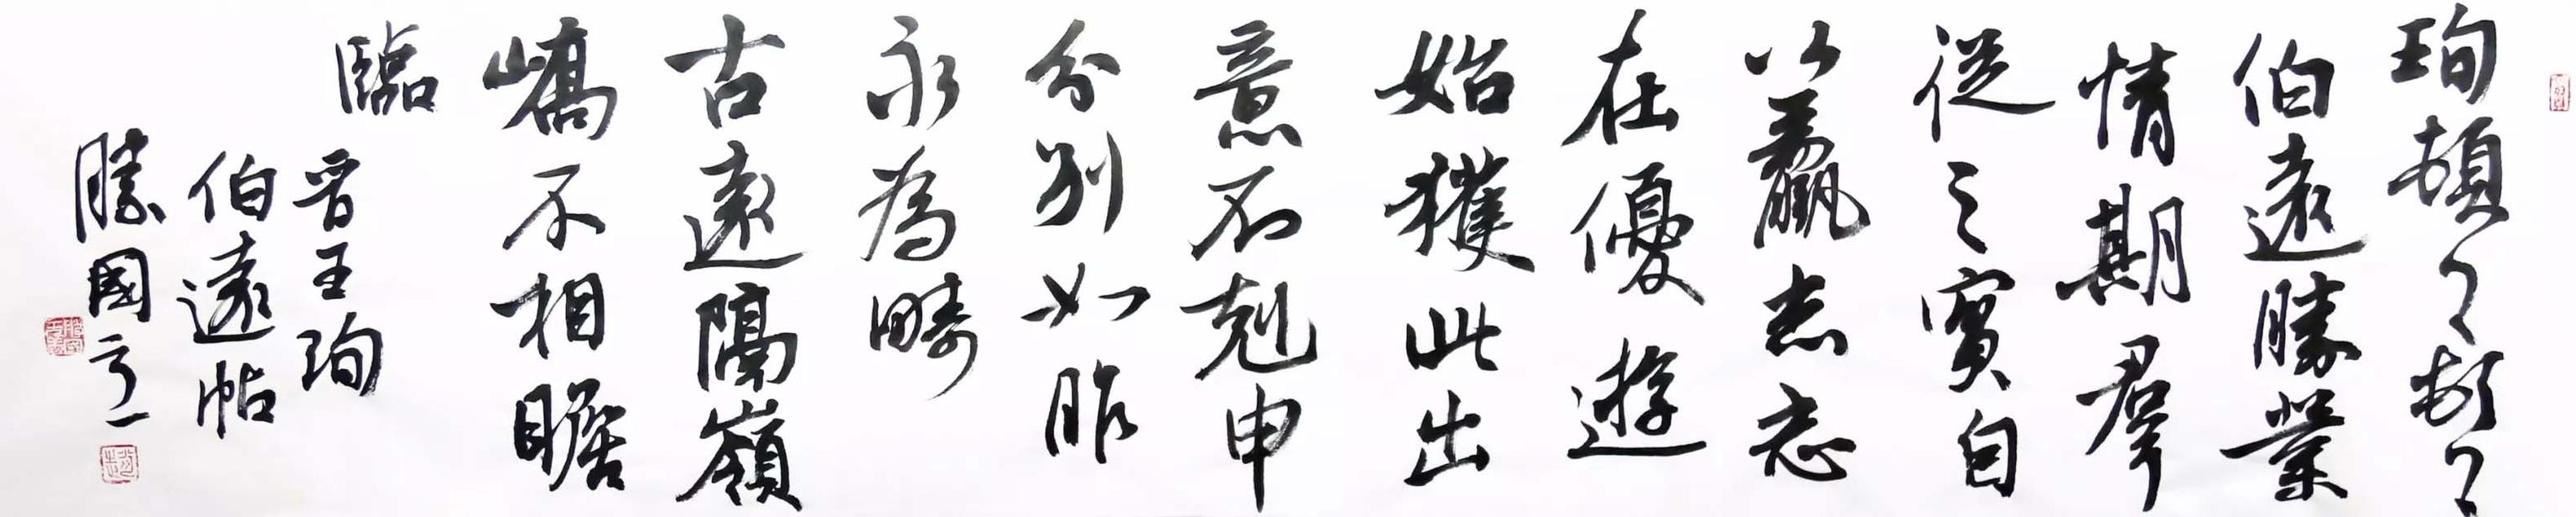 珣頓首頓首
伯遠勝業
情期羣
從之寶自
以羸患志
在優遊
始獲此出
意不剋申
分別如昨
永為疇
古遠隔嶺
嶠不相瞻
臨
晉王珣
伯遠帖
勝國